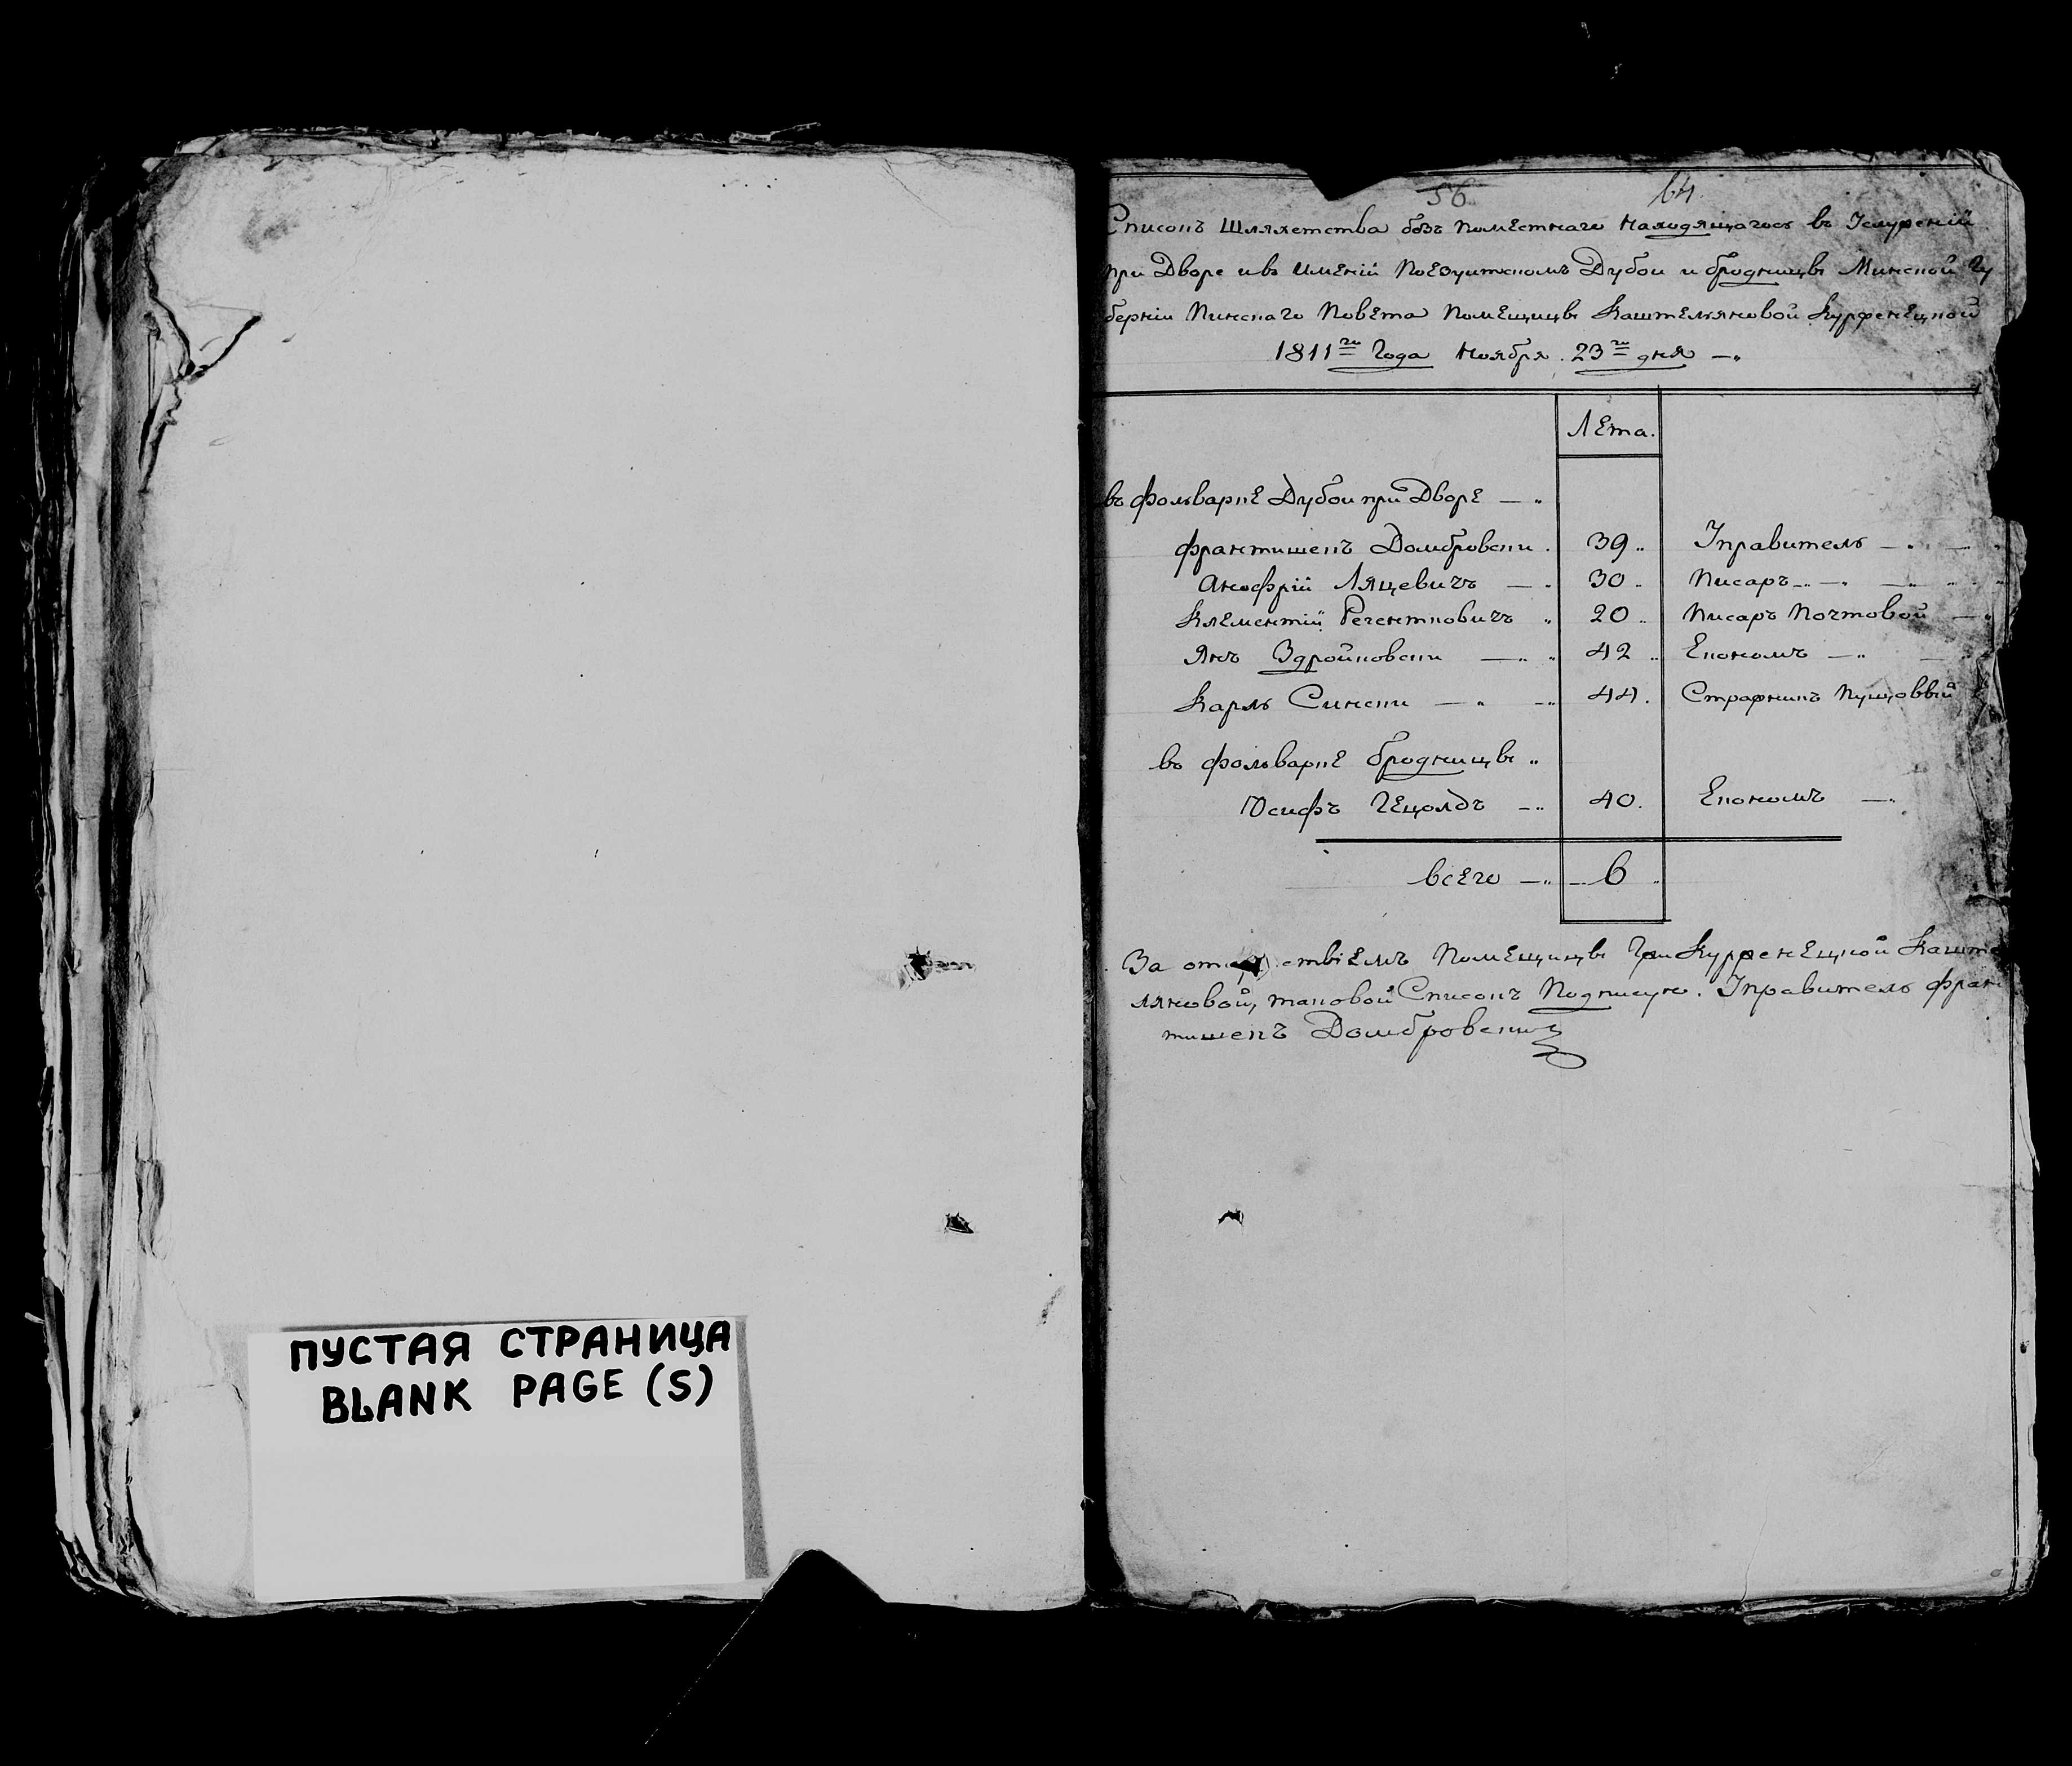 ПУСТАЯ СТРАНИЦА
BLANK PAGE (S)
56 64.
Списокъ Шляхетства безъ поместнаго находящагося въ Услужений
при Дворе и въ имений Поезуитскомъ Дубои и бродницы Минской Гу
берніи Пинскаго Повета Помещицы Каштеляновой Курженецкой
1811го Года Ноября 23го дня
Лета.
въ фольварке Дубои при Дворе
Франтишекъ Домбровски. 39 Управитель
Анофрій Ляцевичъ 30 Писаръ
Клементій Регентковичъ 20 Писаръ Почтовой
Янъ Здройковски 42 Економъ
Карль Сински 44. Стражникъ Пущовый
въ фольварке бродницы
Юсифъ Гецолдъ 40. Економъ
всего 6
За отсутствіемъ Помещицы Курженецкой Каште
ляновой, таковой Списокъ Подписую. Управитель Фран
тишекъ Домбровски